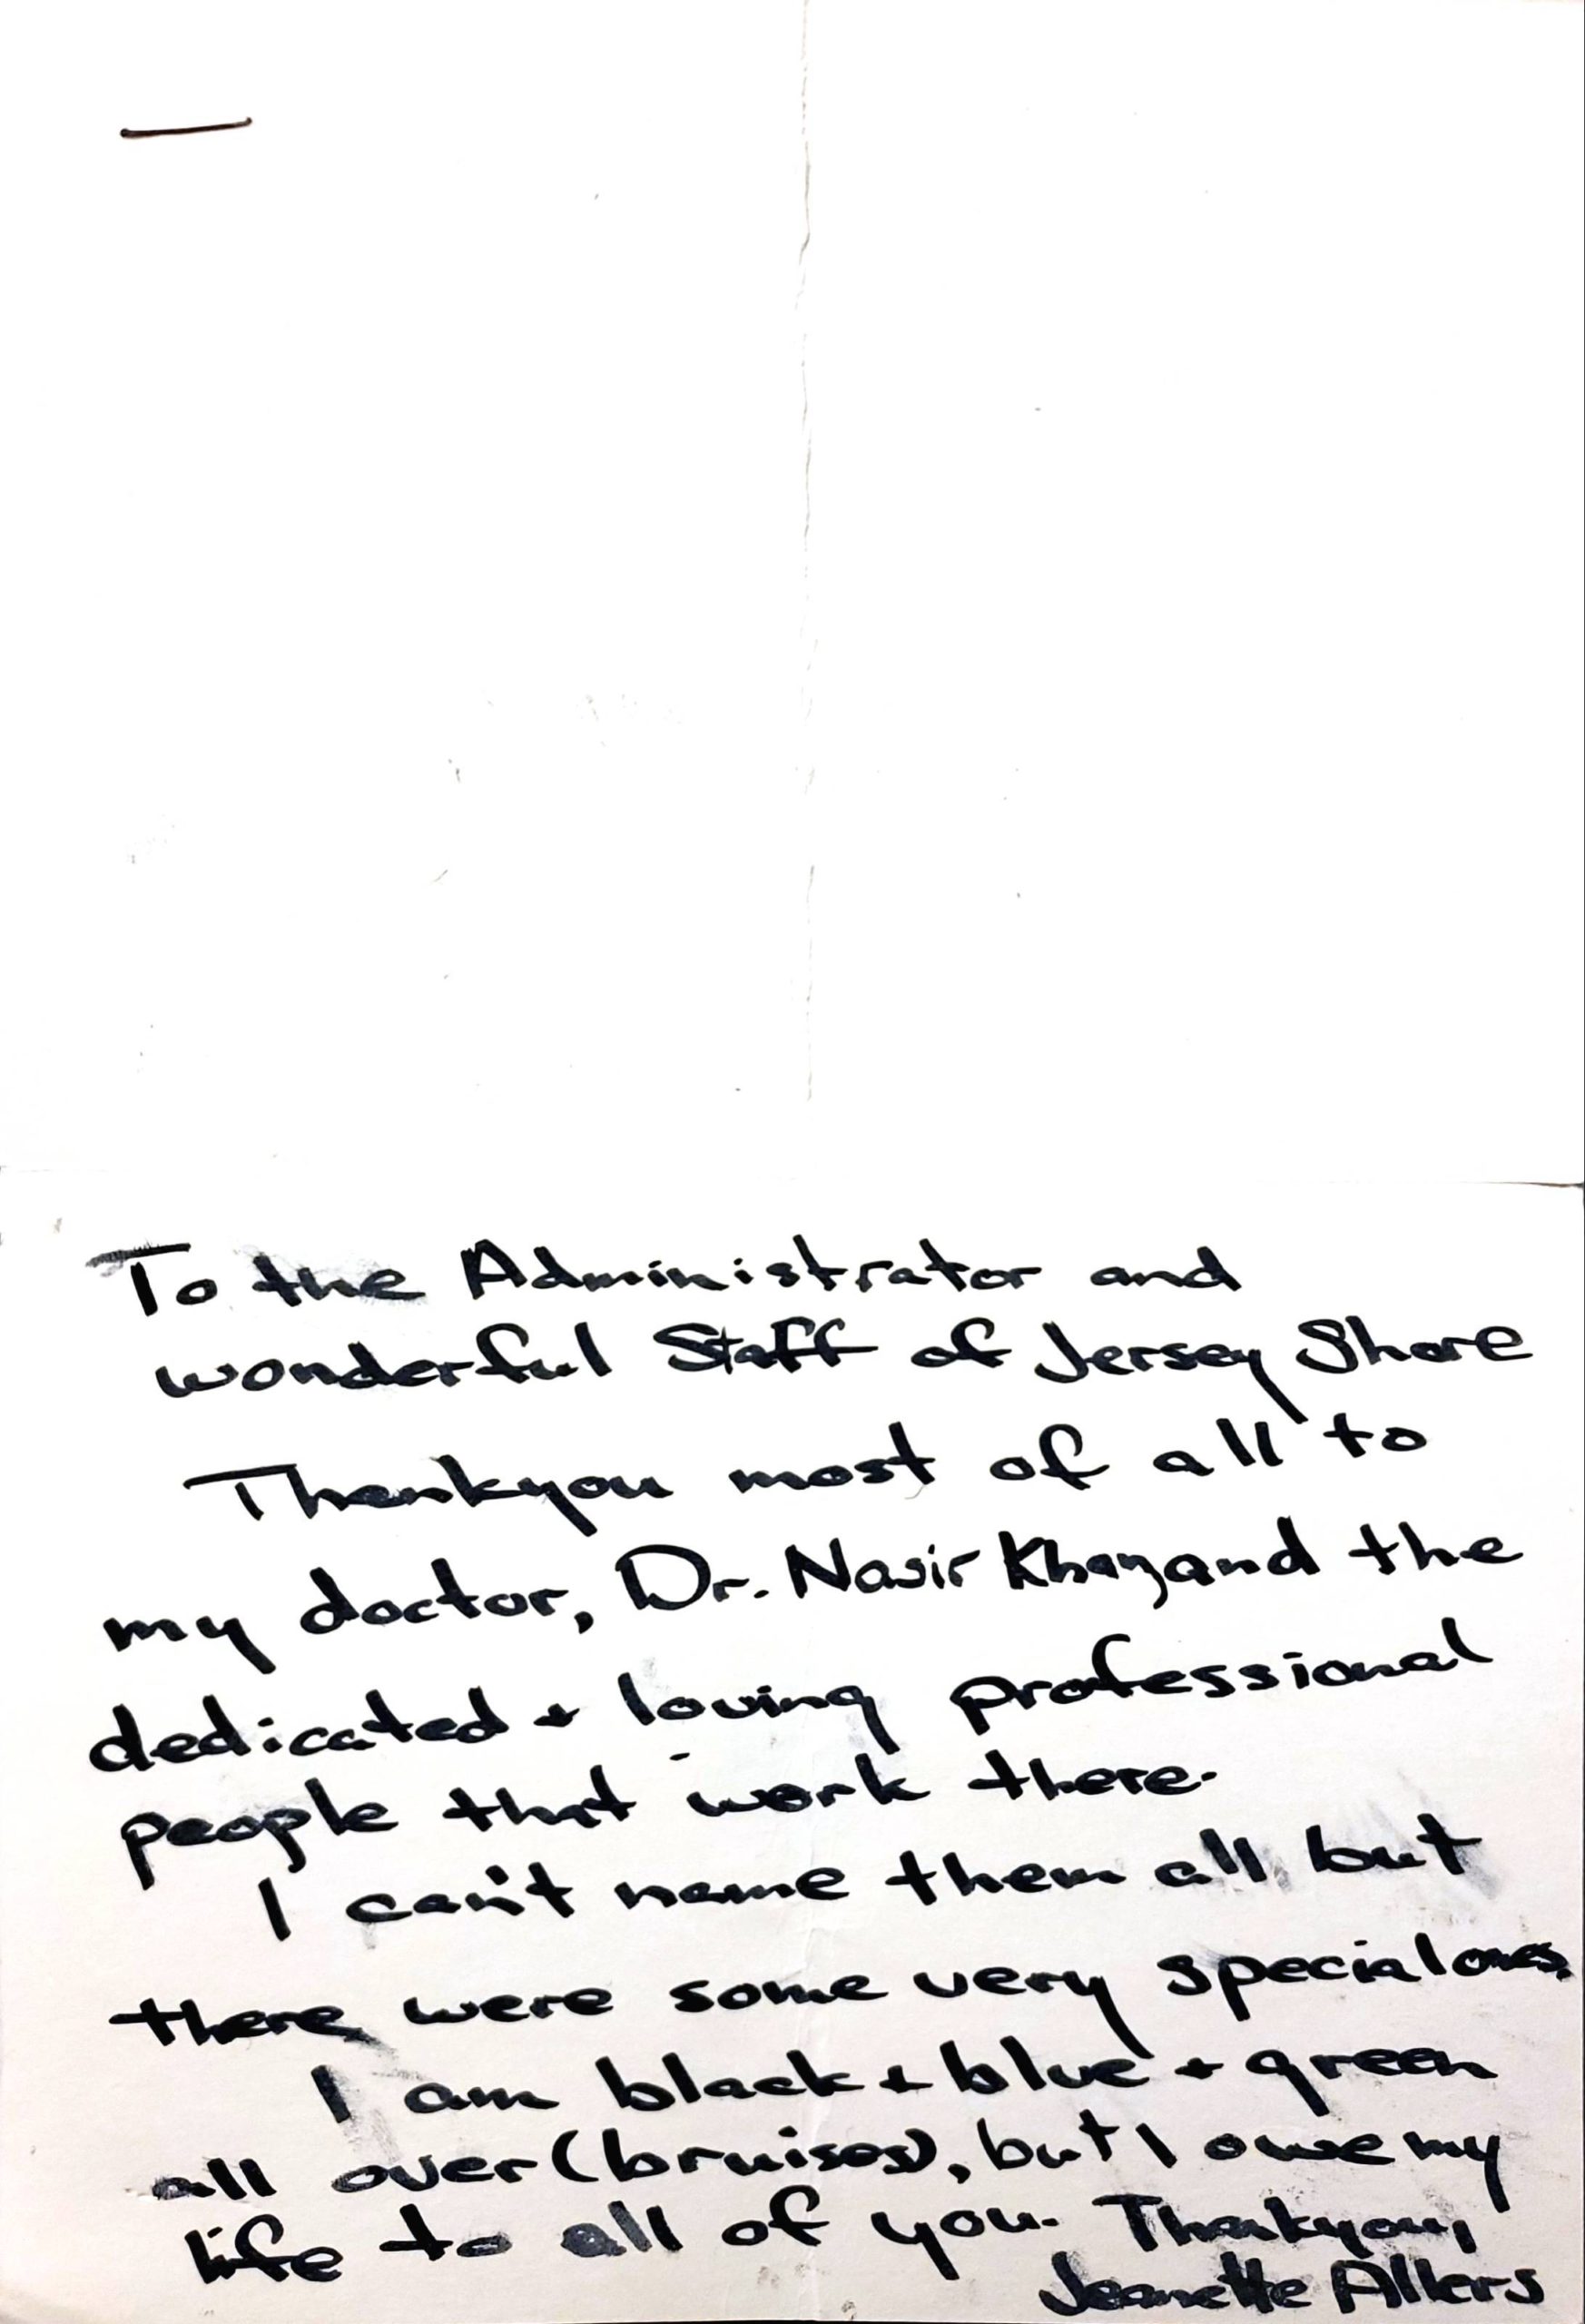 To the Administrator and
wonderful Staff of Jersey Shore
Thankyou most of all to
my doctor, Dr. Nasir Khazand the
dedicated + loving professional
people that work there.
I can't name them all, but
there were some very special ones.
I am black + blue + green
all over (bruises), but I owe my
life to all of you. Thankyou,
Jeanette Allers